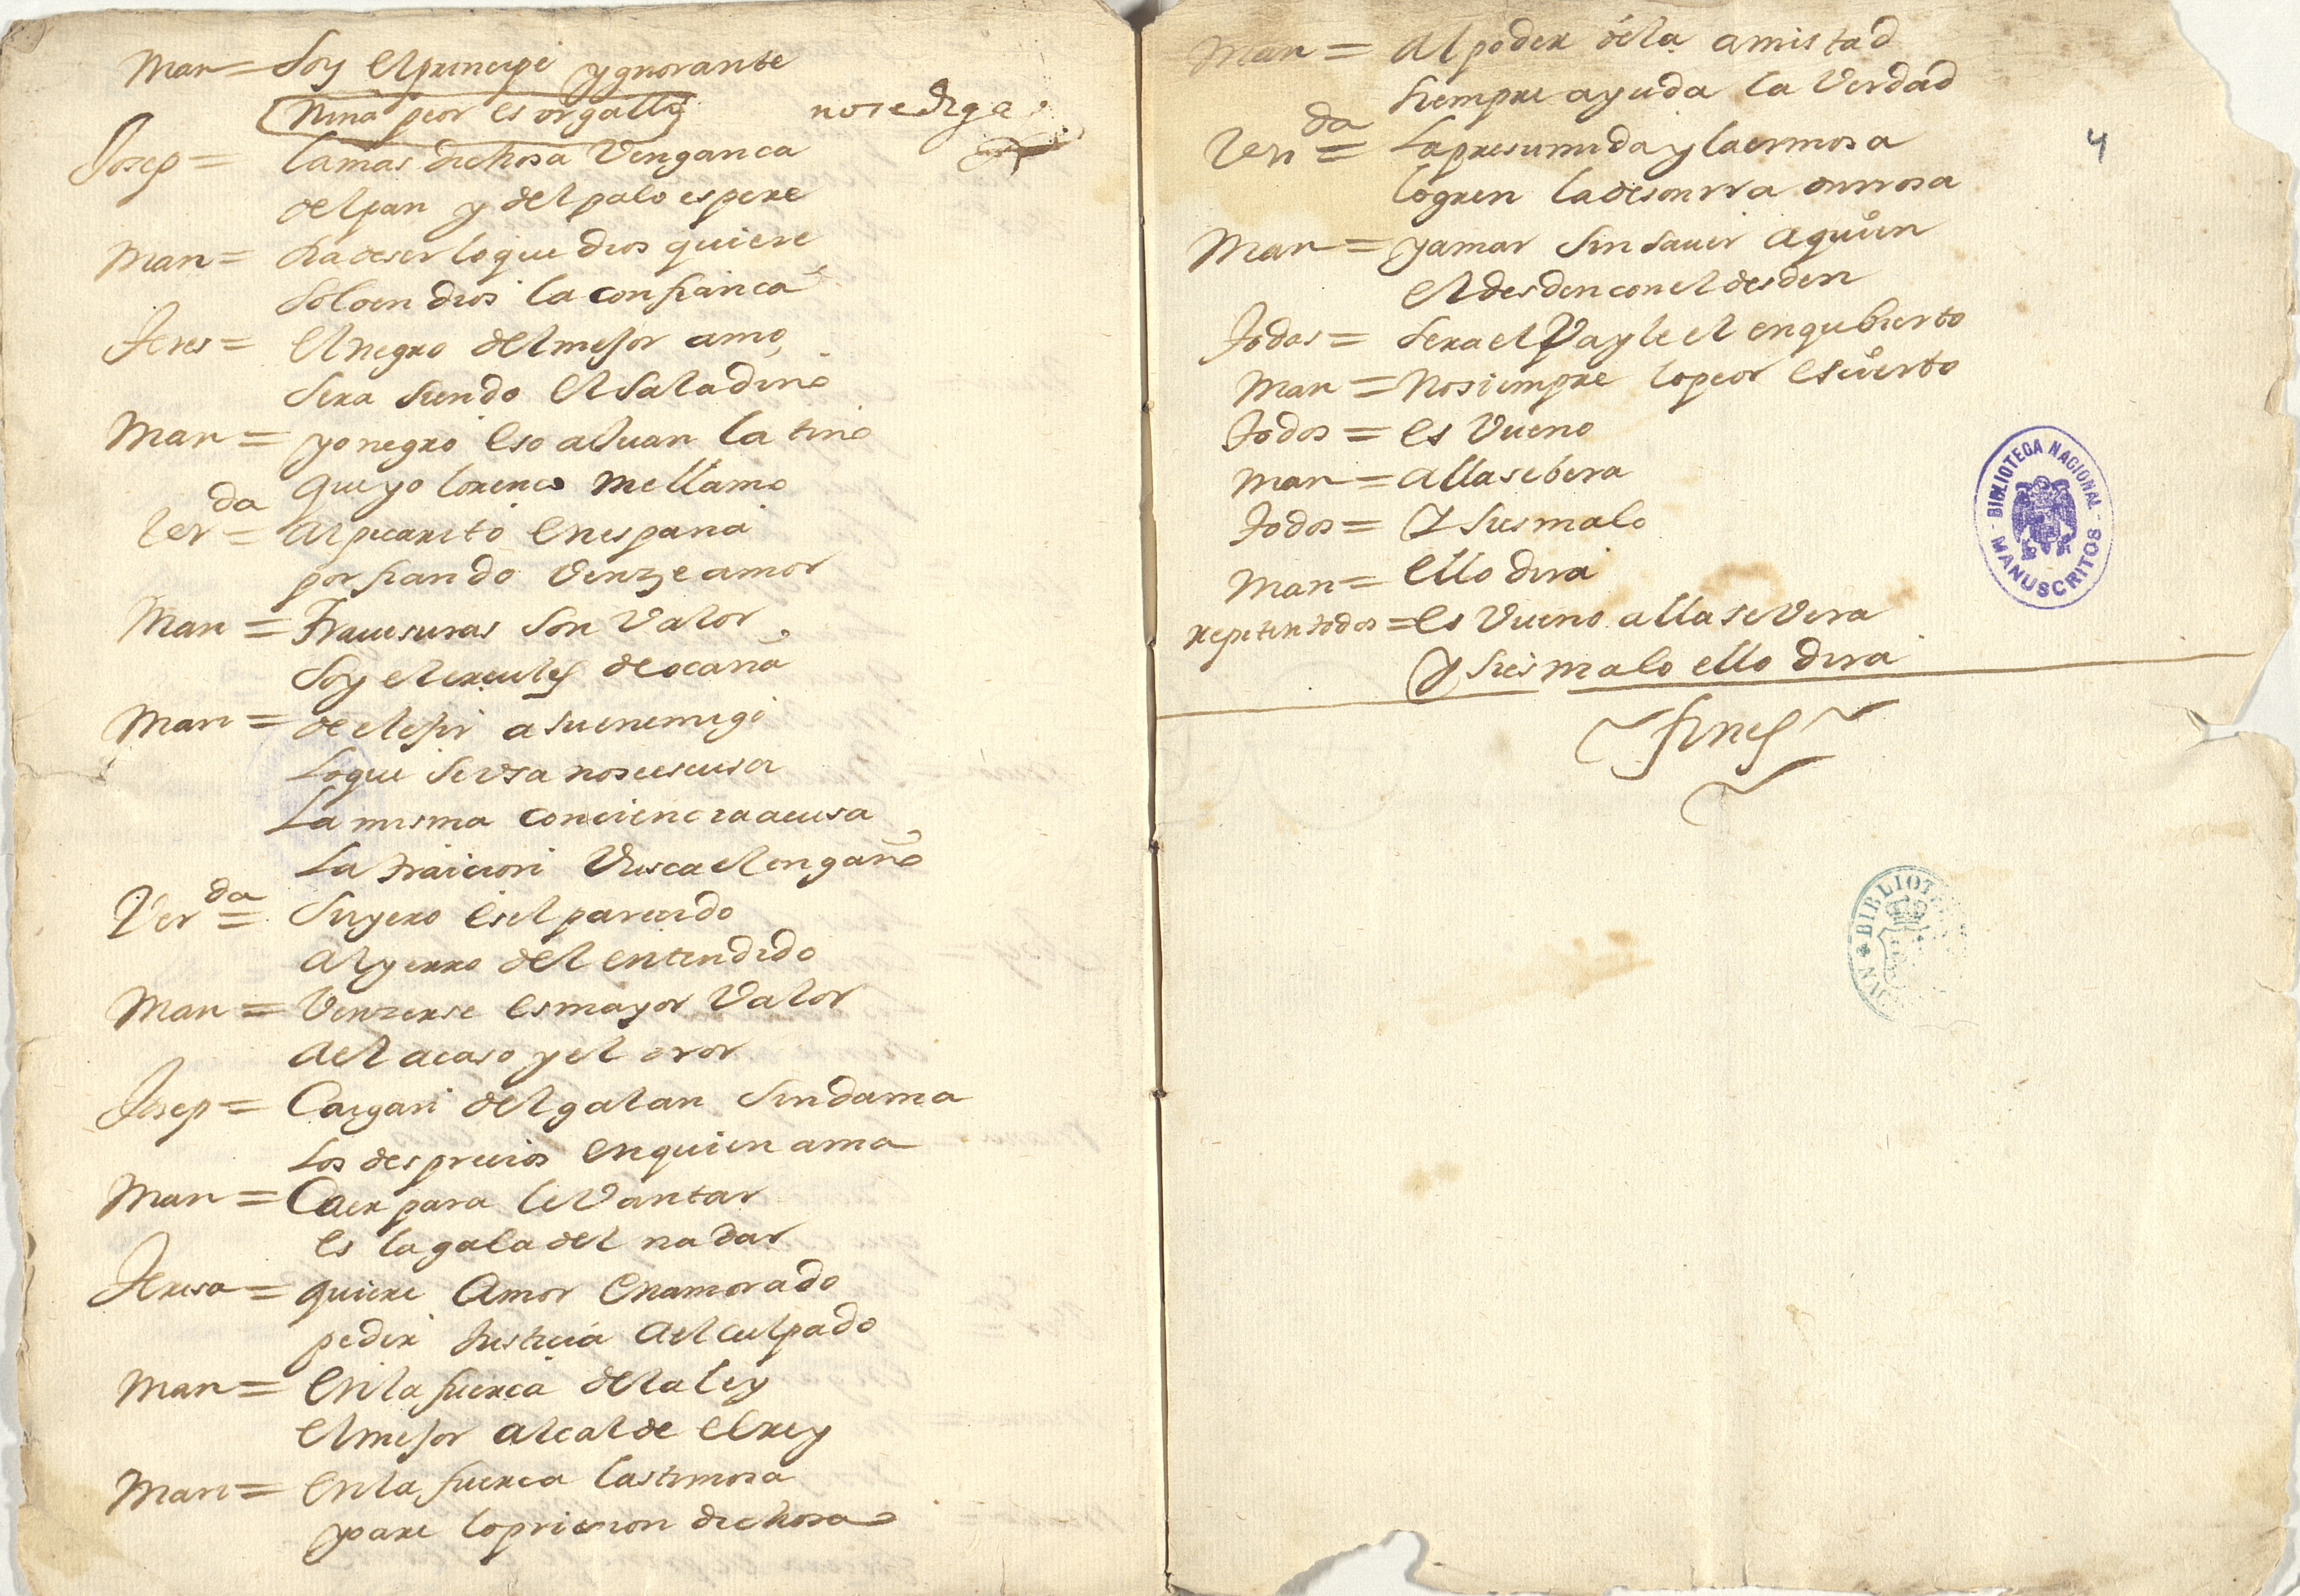 Man = Soy el principe ygnorante
nina peor es orgalla nosediga
Josep = la mas dichosa Venganca
del pan y del palo espere
Man = ha de ser lo que dios quiere
Solo en dios la confianca
Teres = el negro del mejor amo
Sera siendo el Saladino
Man = yo negro eso a Juan latino
que yo lorenco me llamo
Ver da = Al picarito en españa
porfiando Venze amor
Man = Travesuras Son Valor
Soy el ercules de ocaña
Man = de elejir a su enemigo
Lo que se vsa no se escusa
La misma conciencia acusa
La traicion Vusca el engaño
Ver da = Su yero es el parecido
Al yerro del entendido
Man = Venzerse es mayor Valor
del acaso y el eror
Josep = Caigan del galan Sin dama
Los desprecios en quien ama
Man = Caer para leVantar
es la gala del nadar
Teresa = quiere Amor enamorado
pedir Justicia al culpado
Man = en la fuerca de la ley
el mejor alcalde el rey
Man = en la fuerca lastimosa
pare la pricion dichosa
Man = Al poder de la amistad
siempre ayuda la Verdad
4
Ver da = La presumida y la ermosa
logren la desonrra onrrosa
Man = y amar Sin Saver a quien
el desden con el desden
Todos = Sera el Vayle el encubierto
Man = No siempre lo peor es cierto
Todos = es Vueno
Man = alla se bera
Todos = y si es malo
Man = ello dira
repiten todos = es Vueno alla se Vera
y si es malo ello dira
fines
BIBLIOTECA NACIONAL
MANUSCRITOS
BIBLIOT